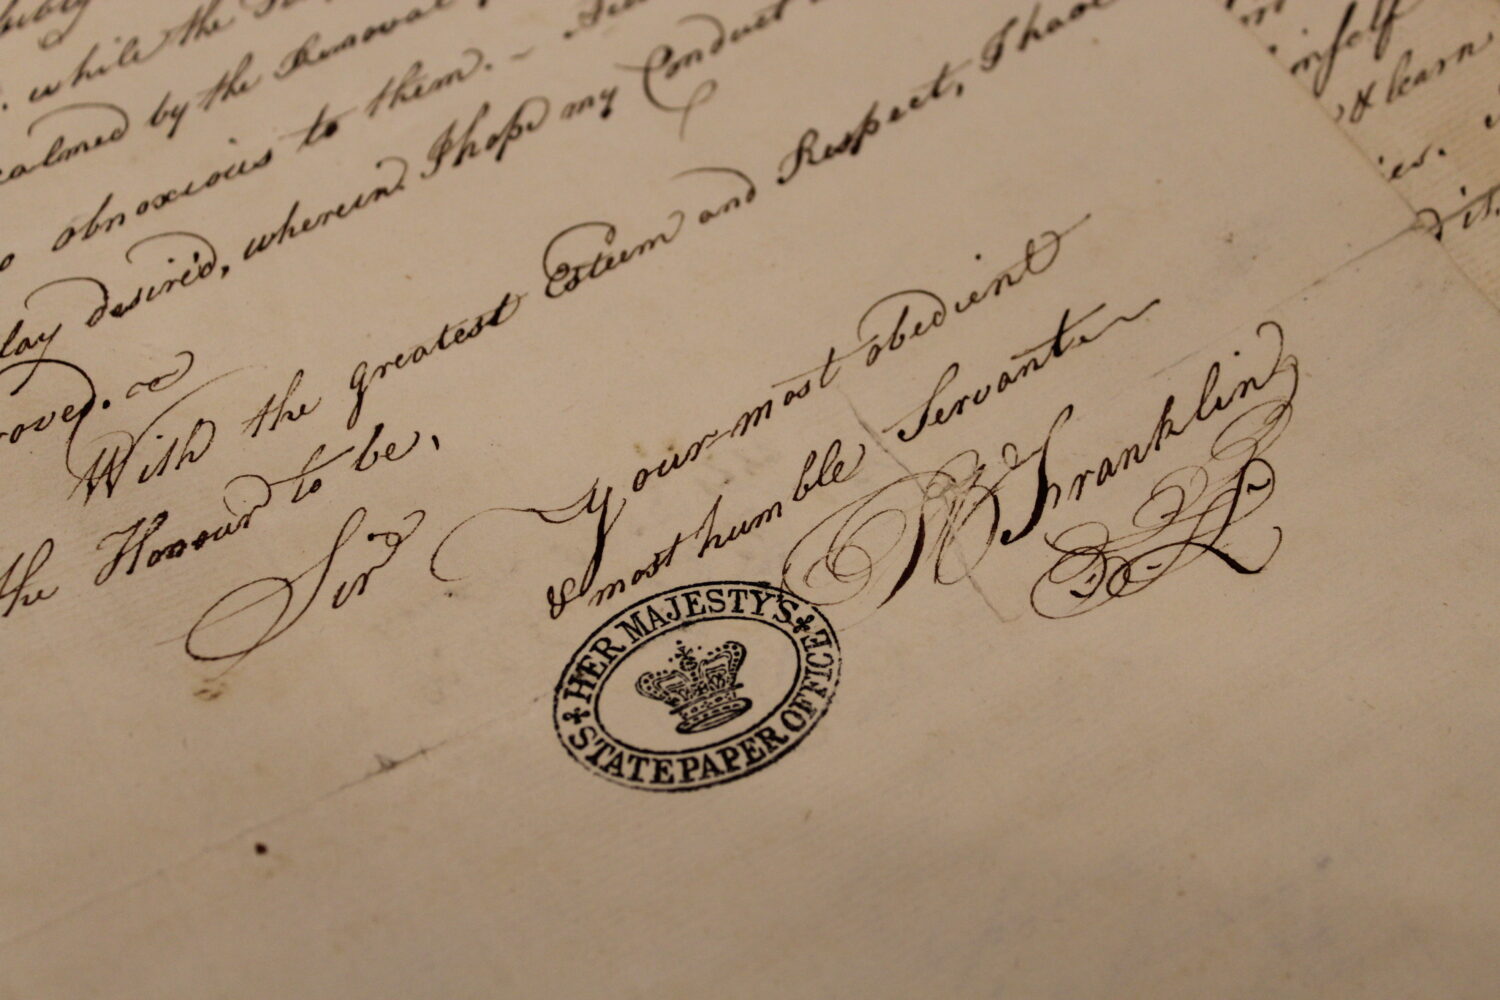 while the
calmed by the Removal
obnoxious to them. –
lay desired, wherein I hope my Conduct
With the greatest Esteem and Respect, I have
the Honour to be,
Sir
Your most obedient
& most humble Servant
B Franklin
HER MAJESTY'S
STATE PAPER OFFICE
& learn